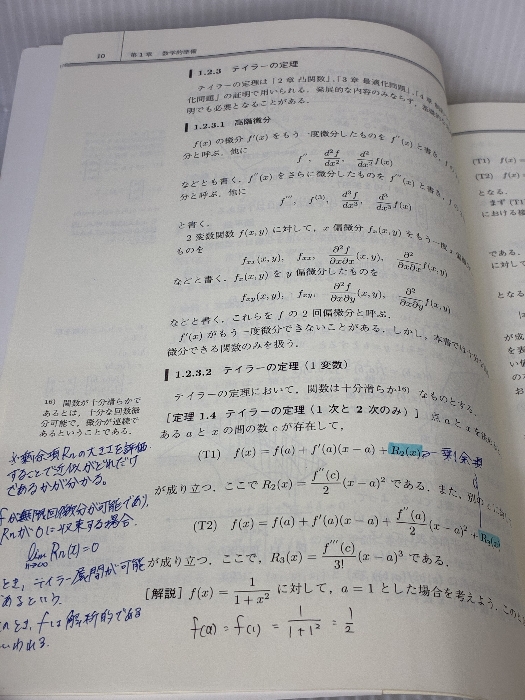 10 第1章 数学的準備
1.2.3 テイラーの定理
テイラーの定理は「2章 凸関数」,「3章 最適化問題」,「4章
化問題」の証明で用いられる. 発展的な内容のみならず,
明でも必要となることがある.
1.2.3.1 高階微分
f(x) の微分 f'(x) をもう一度微分したものを f''(x) と書き,
分と呼ぶ. 他に
f'', d²f/dx², d²/dx² f(x)
などとも書く. f''(x) をさらに微分したものを f'''(x) と書き,
分と呼ぶ. 他に
f''', f⁽³⁾, d³f/dx³, d³/dx³ f(x)
と書く.
2変数関数 f(x, y) に対して, x 偏微分 fx(x, y) をもう一度 x
ものを
fxx(x, y), fxx, ∂²f/∂x∂x (x, y), ∂²/∂x∂x f(x, y)
などと書く. fx(x, y) を y 偏微分したものを
fxy(x, y), fxy, ∂²f/∂x∂y (x, y), ∂²/∂x∂y f(x, y)
などと書く. これらを f の2回偏微分と呼ぶ.
f'(x) がもう一度微分できないことがある. しかし, 本書では
微分できる関数のみを扱う.
1.2.3.2 テイラーの定理(1変数)
テイラーの定理において, 関数は十分滑らか¹⁶⁾ なものとする.
16) 関数が十分滑らかで
あるとは, 十分な回数微
分可能で, 微分が連続で
あるということである.
[定理 1.4 テイラーの定理(1次と2次のみ)] 点 a と x を
ある a と x の間の数 c が存在して,
(T1) f(x) = f(a) + f'(a)(x − a) + R₂(x) 剰余項
が成り立つ. ここで R₂(x) = f''(c)/2 (x − a)² である. また, 別の
(T2) f(x) = f(a) + f'(a)(x − a) + f''(a)/2 (x − a)² + R₃(x)
が成り立つ. ここで, R₃(x) = f'''(c)/3! (x − a)³ である.
[解説] f(x) = 1/(1 + x²) に対して, a = 1 とした場合を考えよう.
f(a) = f(1) = 1/(1+1²) = 1/2
※剰余項Rnの大きさを評価
することで近似がどれだけ
であるかが分かる.
fが無限回微分が可能であり,
Rnが0に収束する場合
lim n→∞ Rn(x) = 0
とき, テイラー展開が可能
あるという.
のとき, fは解析的である
いわれる.
(T1) f(x) =
(T2) f(x) =
となる.
まず (T1)
における
である.
に対して
となる